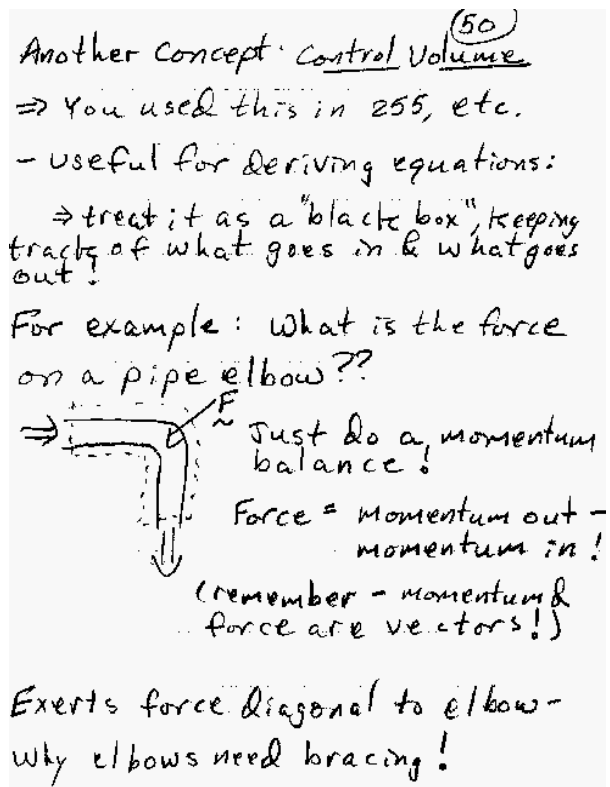 50
Another Concept: Control Volume
⇒ You used this in 255, etc.
- useful for deriving equations:
⇒ treat it as a "black box", keeping
track of what goes in & what goes
out!
For example: What is the force
on a pipe elbow??
F
~
Just do a momentum
balance!
Force = momentum out -
momentum in!
(remember - momentum &
force are vectors!)
Exerts force diagonal to elbow -
why elbows need bracing!